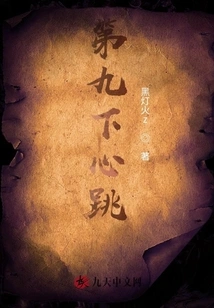 第九下心跳
黑灯火
著
九天中文网